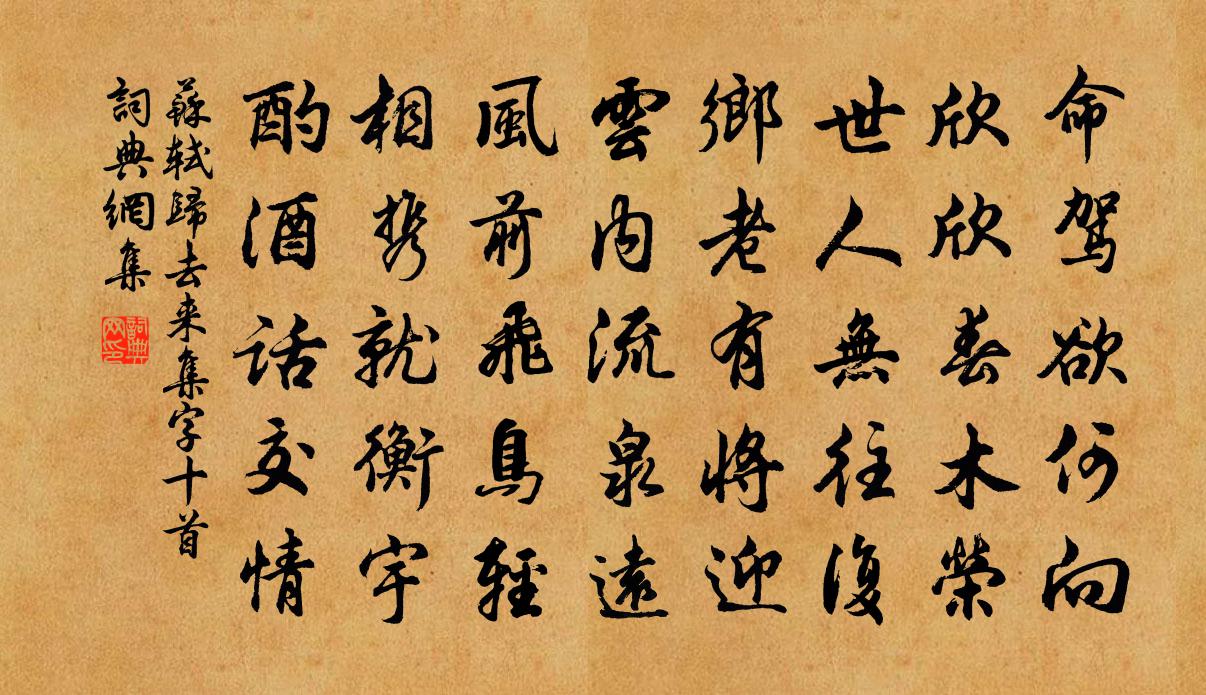 命駕欲何向
欣欣春木榮
世人無往復
鄉老有將迎
雲內流泉遠
風前飛鳥輕
相携就衡宇
酌酒話交情
蘇軾歸去来集字十首
詞典網集
詞典网印